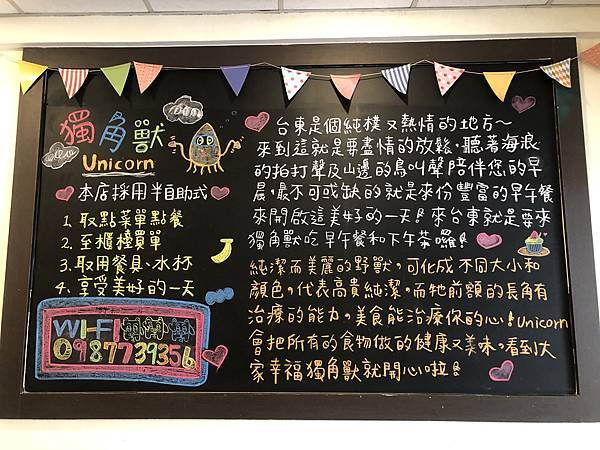 獨角獸
Unicorn
本店採用半自助式
1. 取點菜單點餐
2. 至櫃檯買單
3. 取用餐具、水杯
4. 享受美好的一天
WI-FI
0987739356
台東是個純樸又熱情的地方~
來到這就是要盡情的放鬆,聽著海浪
的拍打聲及山邊的鳥叫聲陪伴您的早
晨,最不可或缺的就是來份豐富的早午餐
來開啟這美好的一天!來台東就是要來
獨角獸吃早午餐和下午茶囉!
純潔而美麗的野獸,可化成不同大小和
顏色,代表高貴純潔,而牠前額的長角有
治療的能力,美食能治療你的心!Unicorn
會把所有的食物做的健康又美味,看到大
家幸福獨角獸就開心啦!